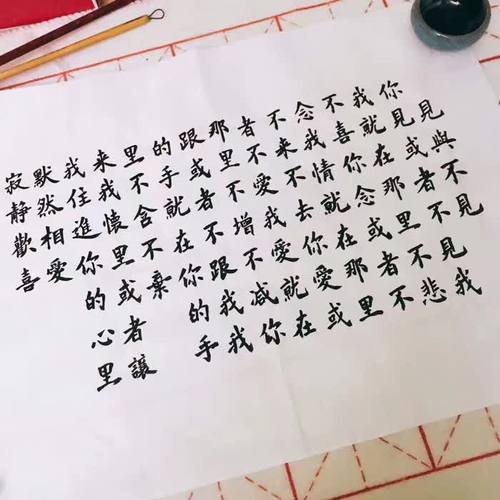 見與不見
你見或者不見我
我就在那里不悲
不喜你念或者不
念我情就在那里
不来不去你愛或
者不愛我愛就在
那里不增不减你
跟或者不跟我我
的手就在你的手
里不含不棄
来我懷里或者讓
我住進你的心里
默然相愛
寂静歡喜